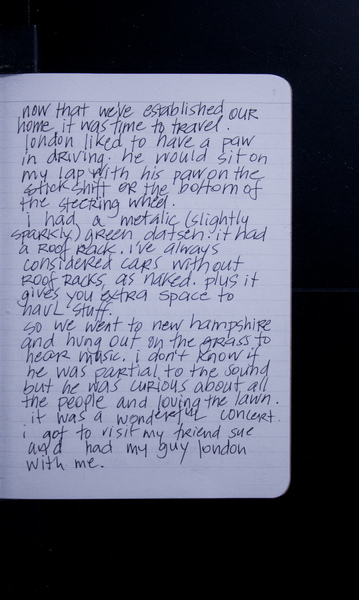 now that we've established our
home it was time to travel.
london liked to have a paw
in driving. he would sit on
my lap with his paw on the
stick shift or the bottom of
the steering wheel.
i had a metalic (slightly
sparkly) green datsen. it had
a roof rack. i've always
considered cars without
roof racks as naked. plus it
gives you extra space to
haul stuff.
so we went to new hampshire
and hung out on the grass to
hear music. i don't know if
he was partial to the sound
but he was curious about all
the people and loving the lawn.
it was a wonderful concert.
i got to visit my friend sue
and had my guy london
with me.